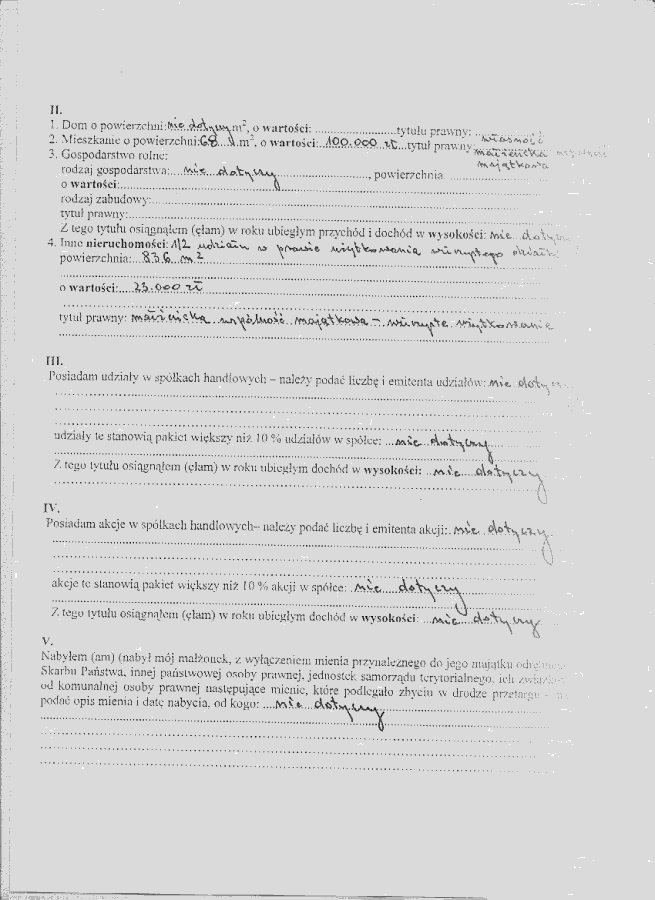 II.
1. Dom o powierzchni: nie dotyczy m², o wartości: ........................tytułu prawny:
2. Mieszkanie o powierzchni: 68 m², o wartości: 100.000 zł tytuł prawny: własność
małżeńska wspólność
majątkowa
3. Gospodarstwo rolne:
rodzaj gospodarstwa: nie dotyczy, powierzchnia
o wartości:
rodzaj zabudowy:
tytuł prawny:
Z tego tytułu osiągnąłem (ęłam) w roku ubiegłym przychód i dochód w wysokości: nie dotyczy
4. Inne nieruchomości: 1/2 udziału w prawie użytkowania wieczystego działki
powierzchnia: 836 m2
o wartości: 23.000 zł
tytuł prawny: małżeńska wspólność majątkowa – wieczyste użytkowanie
III.
Posiadam udziały w spółkach handlowych – należy podać liczbę i emitenta udziałów: nie dotyczy
udziały te stanowią pakiet większy niż 10 % udziałów w spółce: nie dotyczy
Z tego tytułu osiągnąłem (ęłam) w roku ubiegłym dochód w wysokości: nie dotyczy
IV.
Posiadam akcje w spółkach handlowych– należy podać liczbę i emitenta akcji: nie dotyczy
akcje te stanowią pakiet większy niż 10 % akcji w spółce: nie dotyczy
Z tego tytułu osiągnąłem (ęłam) w roku ubiegłym dochód w wysokości: nie dotyczy
V.
Nabyłem (am) (nabył mój małżonek, z wyłączeniem mienia przynależnego do jego majątku
Skarbu Państwa, innej państwowej osoby prawnej, jednostek samorządu terytorialnego, ich
od komunalnej osoby prawnej następujące mienie, które podlegało zbyciu w drodze przetargu –
podać opis mienia i datę nabycia, od kogo: nie dotyczy